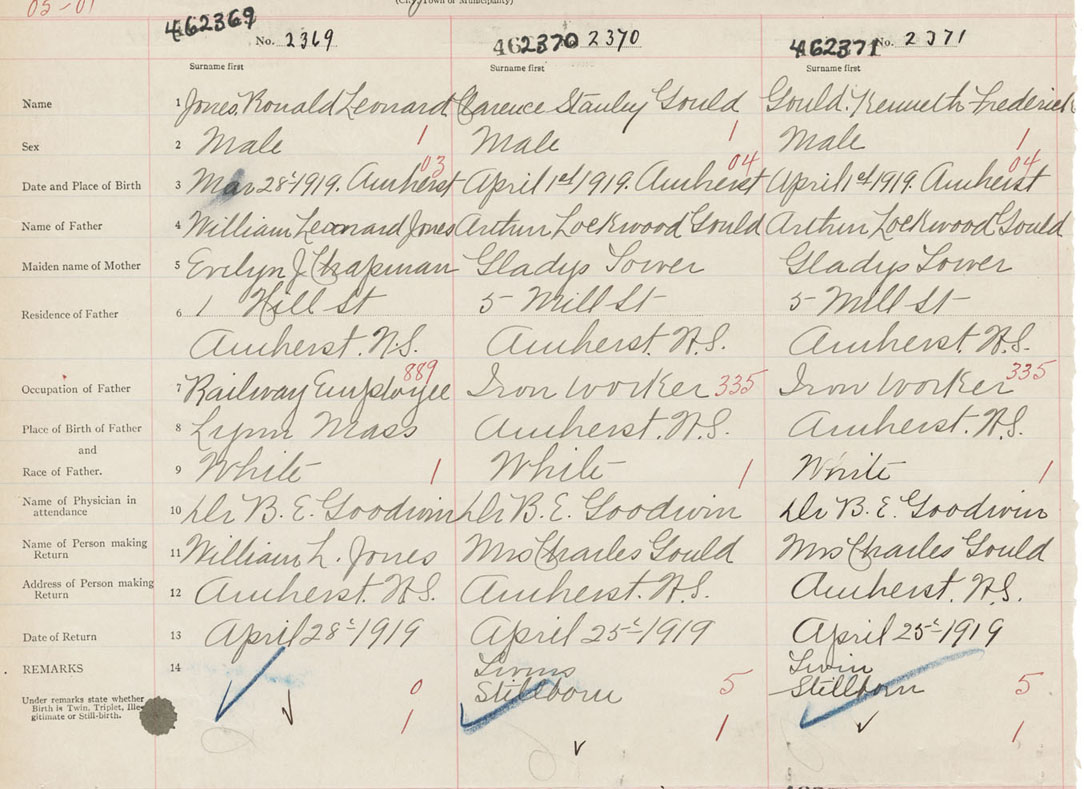 05-01
(City, Town or Municipality)
462369 No. 2369 462370 No. 2370 462371 No. 2371
Surname first Surname first Surname first
Name 1 Jones. Ronald Leonard Clarence Stanley Gould Gould. Kenneth Frederick
Sex 2 Male 1 Male 1 Male 1
03 04 04
Date and Place of Birth 3 Mar 28th 1919. Amherst April 1st 1919. Amherst April 1st 1919. Amherst
Name of Father 4 William Leonard Jones Arthur Lockwood Gould Arthur Lockwood Gould
Maiden name of Mother 5 Evelyn J Chapman Gladys Tower Gladys Tower
Residence of Father 6 1 Hill St 5 Mill St 5 Mill St
Amherst. N.S. Amherst. N.S. Amherst. N.S.
Occupation of Father 7 Railway Employee 889 Iron Worker 335 Iron Worker 335
Place of Birth of Father 8 Lynn Mass Amherst. N.S. Amherst. N.S.
and
Race of Father. 9 White 1 White 1 White 1
Name of Physician in attendance 10 Dr B. E. Goodwin Dr B. E. Goodwin Dr B. E. Goodwin
Name of Person making Return 11 William L. Jones Mrs Charles Gould Mrs Charles Gould
Address of Person making Return 12 Amherst. N.S. Amherst. N.S. Amherst. N.S.
Date of Return 13 April 28th 1919 April 25th 1919 April 25th 1919
REMARKS 14
Stillborn 5 Stillborn 5
Under remarks state whether
Birth is Twin, Triplet, Ille-
gitimate or Still-birth.
0
1 1 1